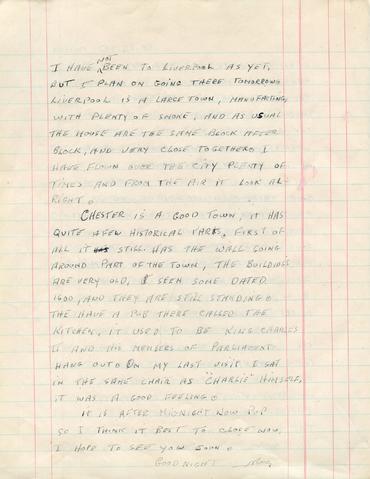 I HAVE NOT BEEN TO LIVERPOOL AS YET,
BUT I PLAN ON GOING THERE TOMORROW.
LIVERPOOL IS A LARGE TOWN, MANUFACTING,
WITH PLENTY OF SMOKE, AND AS USUAL
THE HOUSE ARE THE SAME BLOCK AFTER
BLOCK, AND VERY CLOSE TOGETHERO I
HAVE FLOWN OVER THE CITY PLENTY OF
TIMES AND FROM THE AIR IT LOOK AL-
RIGHT.
CHESTER IS A GOOD TOWN, IT HAS
QUITE A FEW HISTORICAL PARKS, FIRST OF
ALL IT STILL HAS THE WALL GOING
AROUND PART OF THE TOWN, THE BUILDINGS
ARE VERY OLD, I SEEN SOME DATED
1600, AND THEY ARE STILL STANDING.
THE HAVE A PUB THERE CALLED THE
KITCHEN, IT USED TO BE KING CHARLES
II AND HIS MEMBERS OF PARLIAMENT
HANG OUT. ON MY LAST VISIT I SAT
IN THE SAME CHAIR AS "CHARLIE" HIMSELF,
IT WAS A GOOD FEELING.
IT IS AFTER MIDNIGHT NOW POP
SO I THINK IT BEST TO CLOSE NOW,
I HOPE TO SEE YOU SOON.
GOODNIGHT